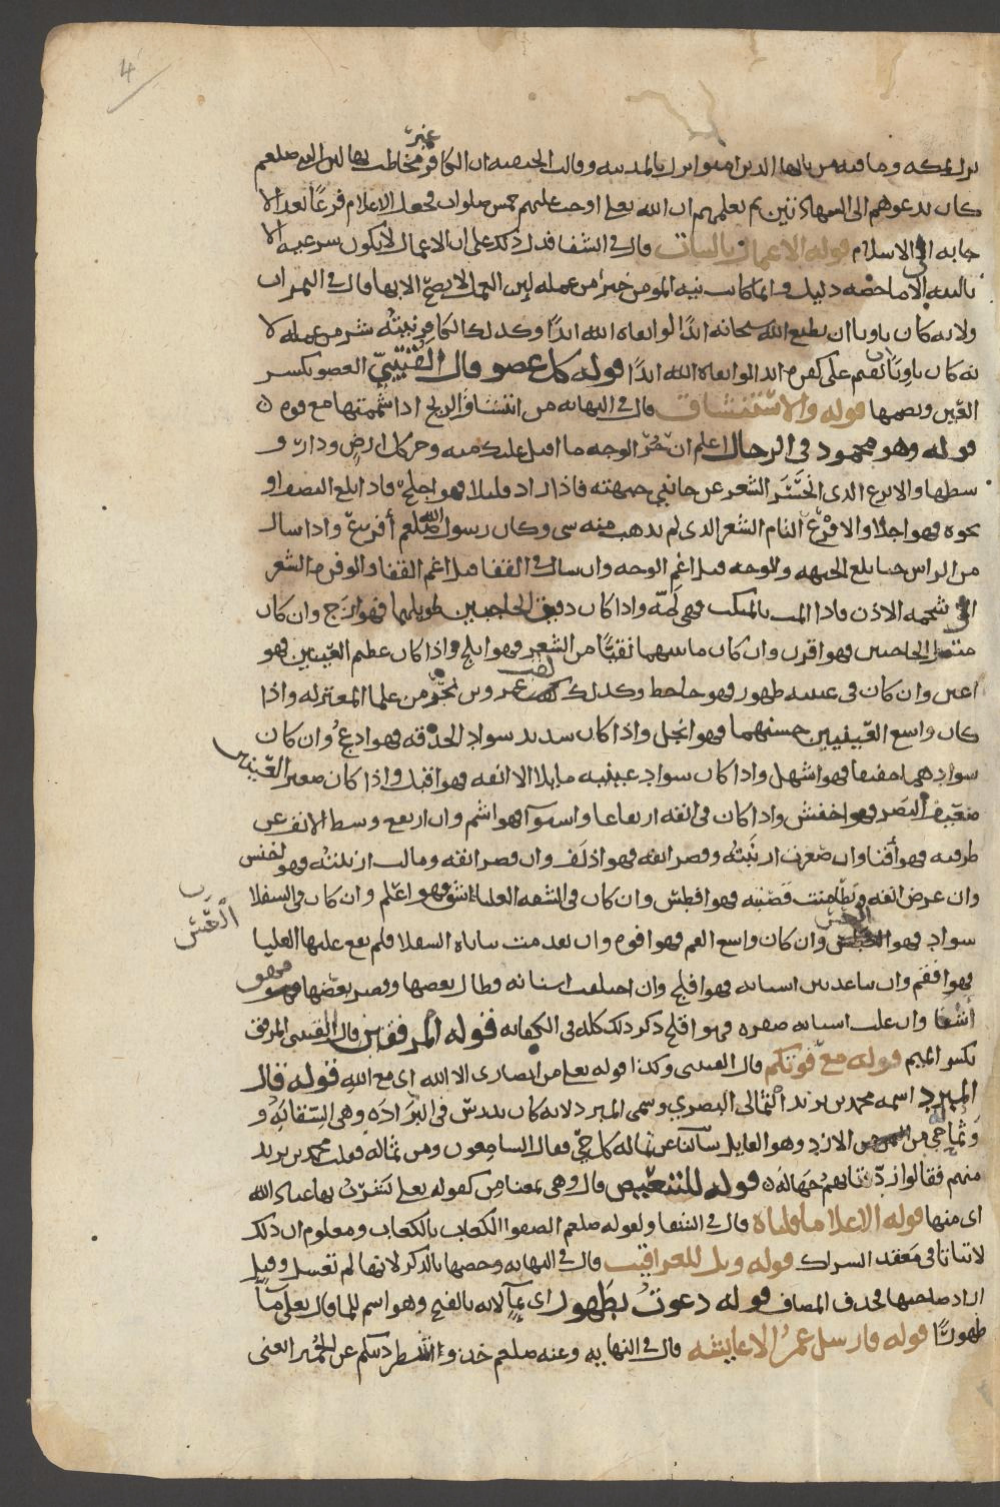 4
غير
نزل بمكه وما فيه من يا ايها الذين امنوا نزل بالمدينه وقالت الحنفيه ان الكافر مخاطب بها لان النبي صلعم
كان يدعوهم الى الشهادتين ثم يعلمهم ان الله تعلى اوجب عليهم خمس صلوات فجعل الاعلام فرعًا بعد الا
جابه الى الاسلام قوله الاعمال بالنيات قال في الشفا فدل ذلك على ان الاعمال لا يكون شرعيه الا
بالنيه الا ما خصه دليل وانما كانت نيه المومن خير من عمله لان العمل لا يصح الا بها قال في الثمرات
ولانه كان ناويا ان يطيع الله سبحانه ابدًا لو ابقاه الله ابدًا وكذلك الكافر نيته شر من عمله لا
نه كان ناويًا ان يقيم على كفره ابدا لو ابقاه الله ابدًا قوله كل عضو قال القتيبي العضو بكسر
العين وبضمها قوله والاستنشاق قال في النهايه من استنشاق الريح اذا شممتها مع قوه
قوله وهو محمود في الرجال اعلم ان حُر الوجه ما اقبل عليك منه وحر كل ارض ودار و
سطها والانزع الذي انحسر الشعر عن جانبي جبهته فاذا زاد قليلا فهو اجلح فاذا بلغ النصف او
نحوه فهو اجلا والافرع التام الشعر الذي لم يذهب منه شي وكان رسول الله صلعم أفرع واذا سال
من الراس حتا بلغ الجبهه والوجه قيل اغم الوجه وان سال في القفا قيل اغم القفا والوفره الشعر
الى شحمه الاذن فاذا المت بالمنكب فهي لمّه واذا كان دقيق الحاجبين طويلهما فهو ازج وان كان
متصل الحاجبين فهو اقرن وان كان ما بينهما نقيًا من الشعر فهو ابلج واذا كان عظيم العينين فهو
اعين وان كان في عينيه ظهور فهو جاحظ وكذلك لقب عمرو بن بحر من علما المعتزله واذا
كان واسع العينين حسنهما فهو انجل واذا كان شديد سواد الحدقه فهو ادعج وان كان
سوادهما خفيفا فهو اشهل واذا كان سواد عينيه مايلا الا انفه فهو اقبل واذا كان صغير العينين
ضعيف البصر فهو اخفش واذا كان في انفه ارتفاعا واستوآ فهو اشم وان ارتفع وسط الانف عن
طرفيه فهو أقنا وان صغرت ارنبته وقصر انفه فهو اذلف وان قصر انفه ومالت ارنبته فهو اخنس
وان عرض انفه وتطامنت قصبته فهو افطس وان كان في الشفه العليا انشق فهو اعلم وان كان في السفلا
سواد فهو اللعس وان كان واسع الفم فهو افوه وان تقدمت ثناياه السفلا فلم يقع عليها العليا
فهو افقم وان تباعد بين اسنانه فهو افلج وان اختلفت اسنانه وطال بعضها وقصر بعضها فهو
أشغا وان علت اسنانه صفره فهو اقلح ذكر ذلك كله في الكفايه قوله المرفقين قال القتيبي المرفق
بكسر الميم قوله مع قوتكم قال القتيبي وكذا قوله تعلى من انصاري الا الله اي مع الله قوله قال
المبرد اسمه محمد بن يزيد الثمالي البصري وسمي المبرد لانه كان يدرس في البرّاده وهي السقايه و
وثماله حي من الازد وهو القايل سألنا عن ثماله كل حي فقال السامعون ومن ثماله فقلت محمد بن يزيد
منهم فقالوا زدتنا بهم جهاله قوله للتبعيض قال وهي بمعنا من كقوله تعلى يشرب بها عباد الله
اي منها قوله الا علا ما قلناه قال في الشفا ولقوله صلعم الصقوا الكعاب بالكعاب ومعلوم ان ذلك
لا يتاتا في معقد الشراك قوله ويل للعراقيب قال في النهايه وخصها بالذكر لانها لم تغسل وقيل
اراد صاحبها فحذف المضاف قوله دعوت بطهور اي بمآ لانه بالفتح وهو اسم للما قال تعلى مآً
طهورًا قوله فارسل عمر الا عايشه قال في النهايه وعنه صلعم خذوا شطر دينكم عن الحميرا يعني
اللعس